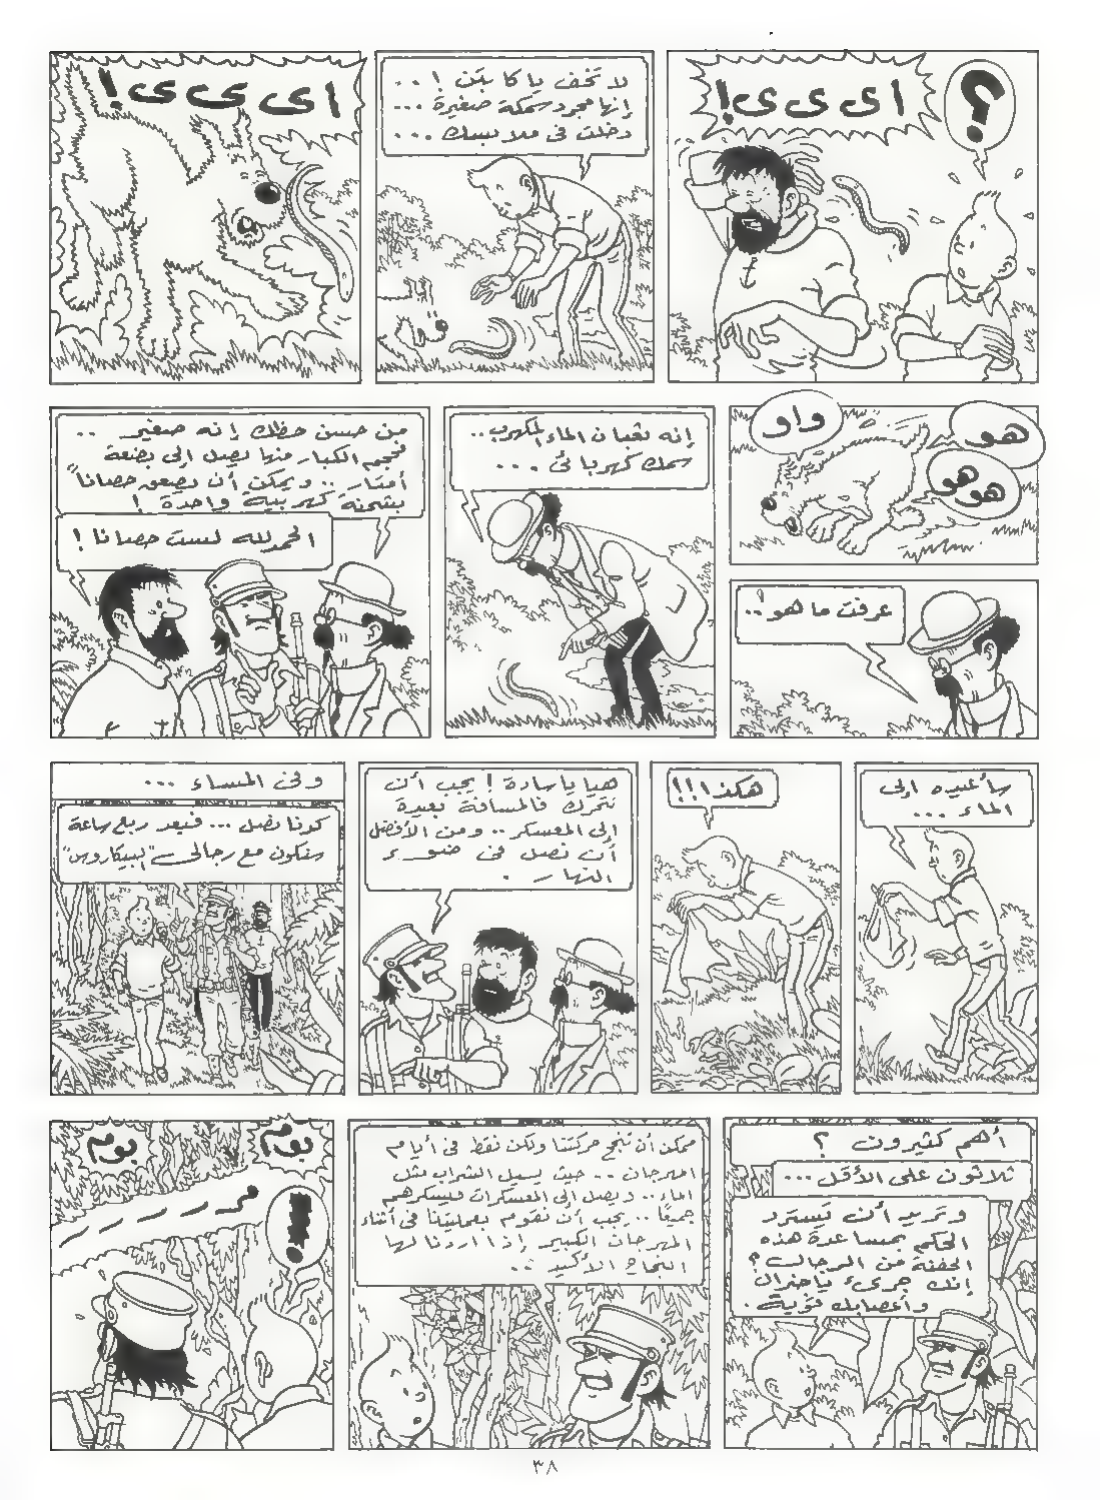 ؟
اى ى ى!
لا تخف يا كابتن ! ..
إنها مجرد سمكة صغيرة ...
دخلت فى ملابسك ...
اى ى ى ى!
واو
هو
هو هو
عرفت ما هو ..
إنه ثعبان الماء المكهرب ..
سمك كهربائى ...
من حسن حظك إنه صغير ..
فحجم الكبار منها يصل إلى بضعة
أمتار .. ويمكن أن يصعق حصاناً
بشحنة كهربية واحدة !
الحمد لله لست حصانا !
سأعيده إلى
الماء ...
هكذا !!
هيا يا سادة ! يجب أن
نتحرك فالمسافة بعيدة
إلى المعسكر .. ومن الأفضل
أن نصل فى ضوء
النهار .
وفى المساء ...
كدنا نصل ... فبعد ربع ساعة
سنكون مع رجالى "البيكاروس"
أهم كثيرون ؟
ثلاثون على الأقل ...
وتريد أن تسترد
الحكم بمساعدة هذه
الحفنة من الرجال ؟
إنك جرىء يا جنرال
وأعصابك قوية .
ممكن أن تنجح حركتنا ولكن فقط فى أيام
المهرجان .. حيث يسيل الشراب مثل
الماء .. ويصل إلى المعسكرات فيسكرهم
جميعًا .. يجب أن نقوم بعمليتنا فى أثناء
المهرجان الكبير إذا اردنا لها
النجاح الأكيد ..
بوم
بوم
!
٣٨